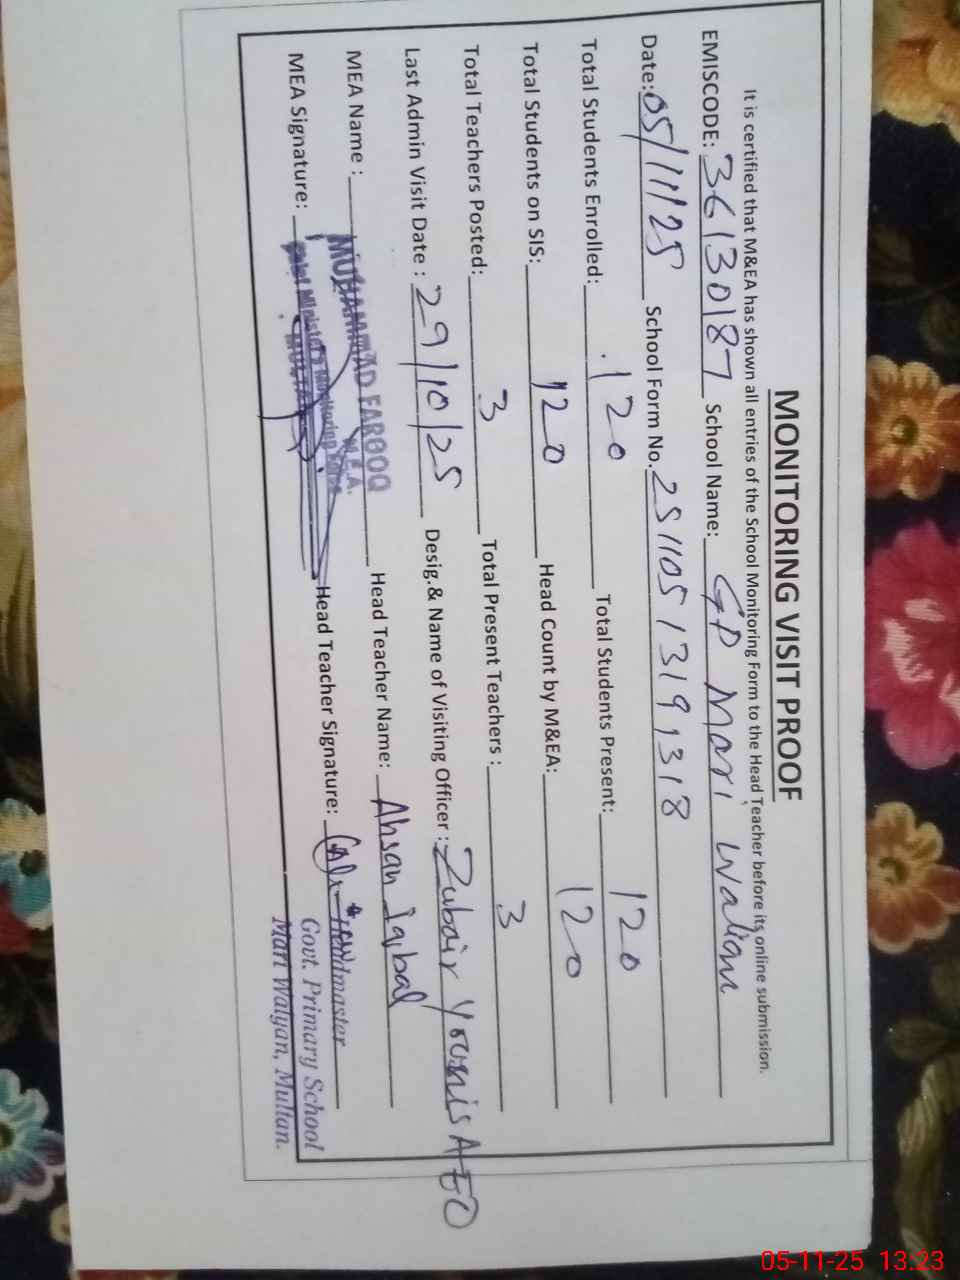 MONITORING VISIT PROOF
It is certified that M&EA has shown all entries of the School Monitoring Form to the Head Teacher before its online submission.
EMISCODE: 36130187 School Name: GP Mari Walian
Date: 05/11/25 School Form No. 251105131919318
Total Students Enrolled: 120 Total Students Present: 120
Total Students on SIS: 120 Head Count by M&EA: 120
Total Teachers Posted: 3 Total Present Teachers : 3
Last Admin Visit Date : 29/10/25 Desig.& Name of Visiting Officer : Zubair Younis AEO
MEA Name : MUHAMMAD FAROOQ Head Teacher Name: Ahsan Iqbal
M.E.A.
Chief Minister's Monitoring Force
MULTAN
MEA Signature: Head Teacher Signature:
Headmaster
Govt. Primary School
Mari Walyan, Multan.
05-11-25 13:23